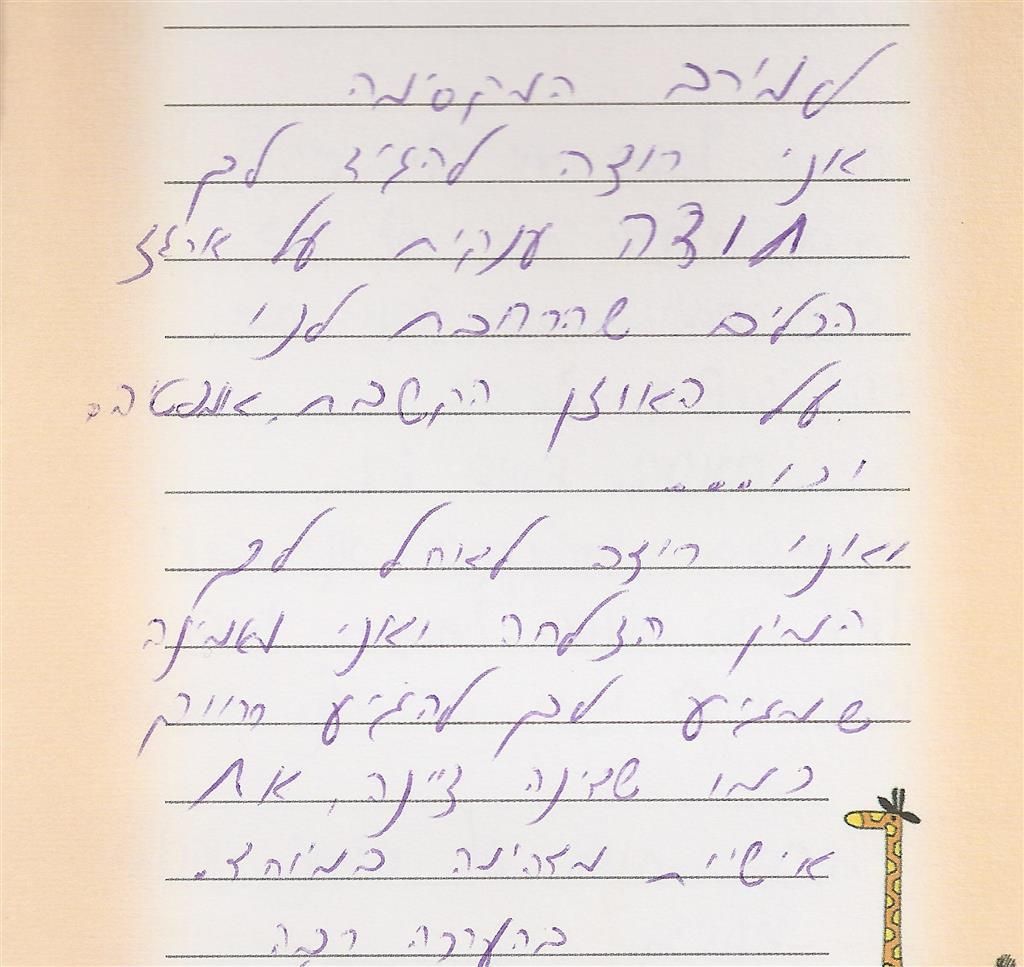 למירב המקסימה
אני רוצה להגיד לך
תודה ענקית על ארגז
הכלים שהרחבת לנו
על האוזן הקשבת, אמפטיה
וכו.....
ואני רוצה לאחל לך
המון הצלחה ואני מאמינה
שמגיע לך להגיע רחוק
כמו שדינה ציינה, את
אישיות מדהימה במיוחד.
בהערכה רבה